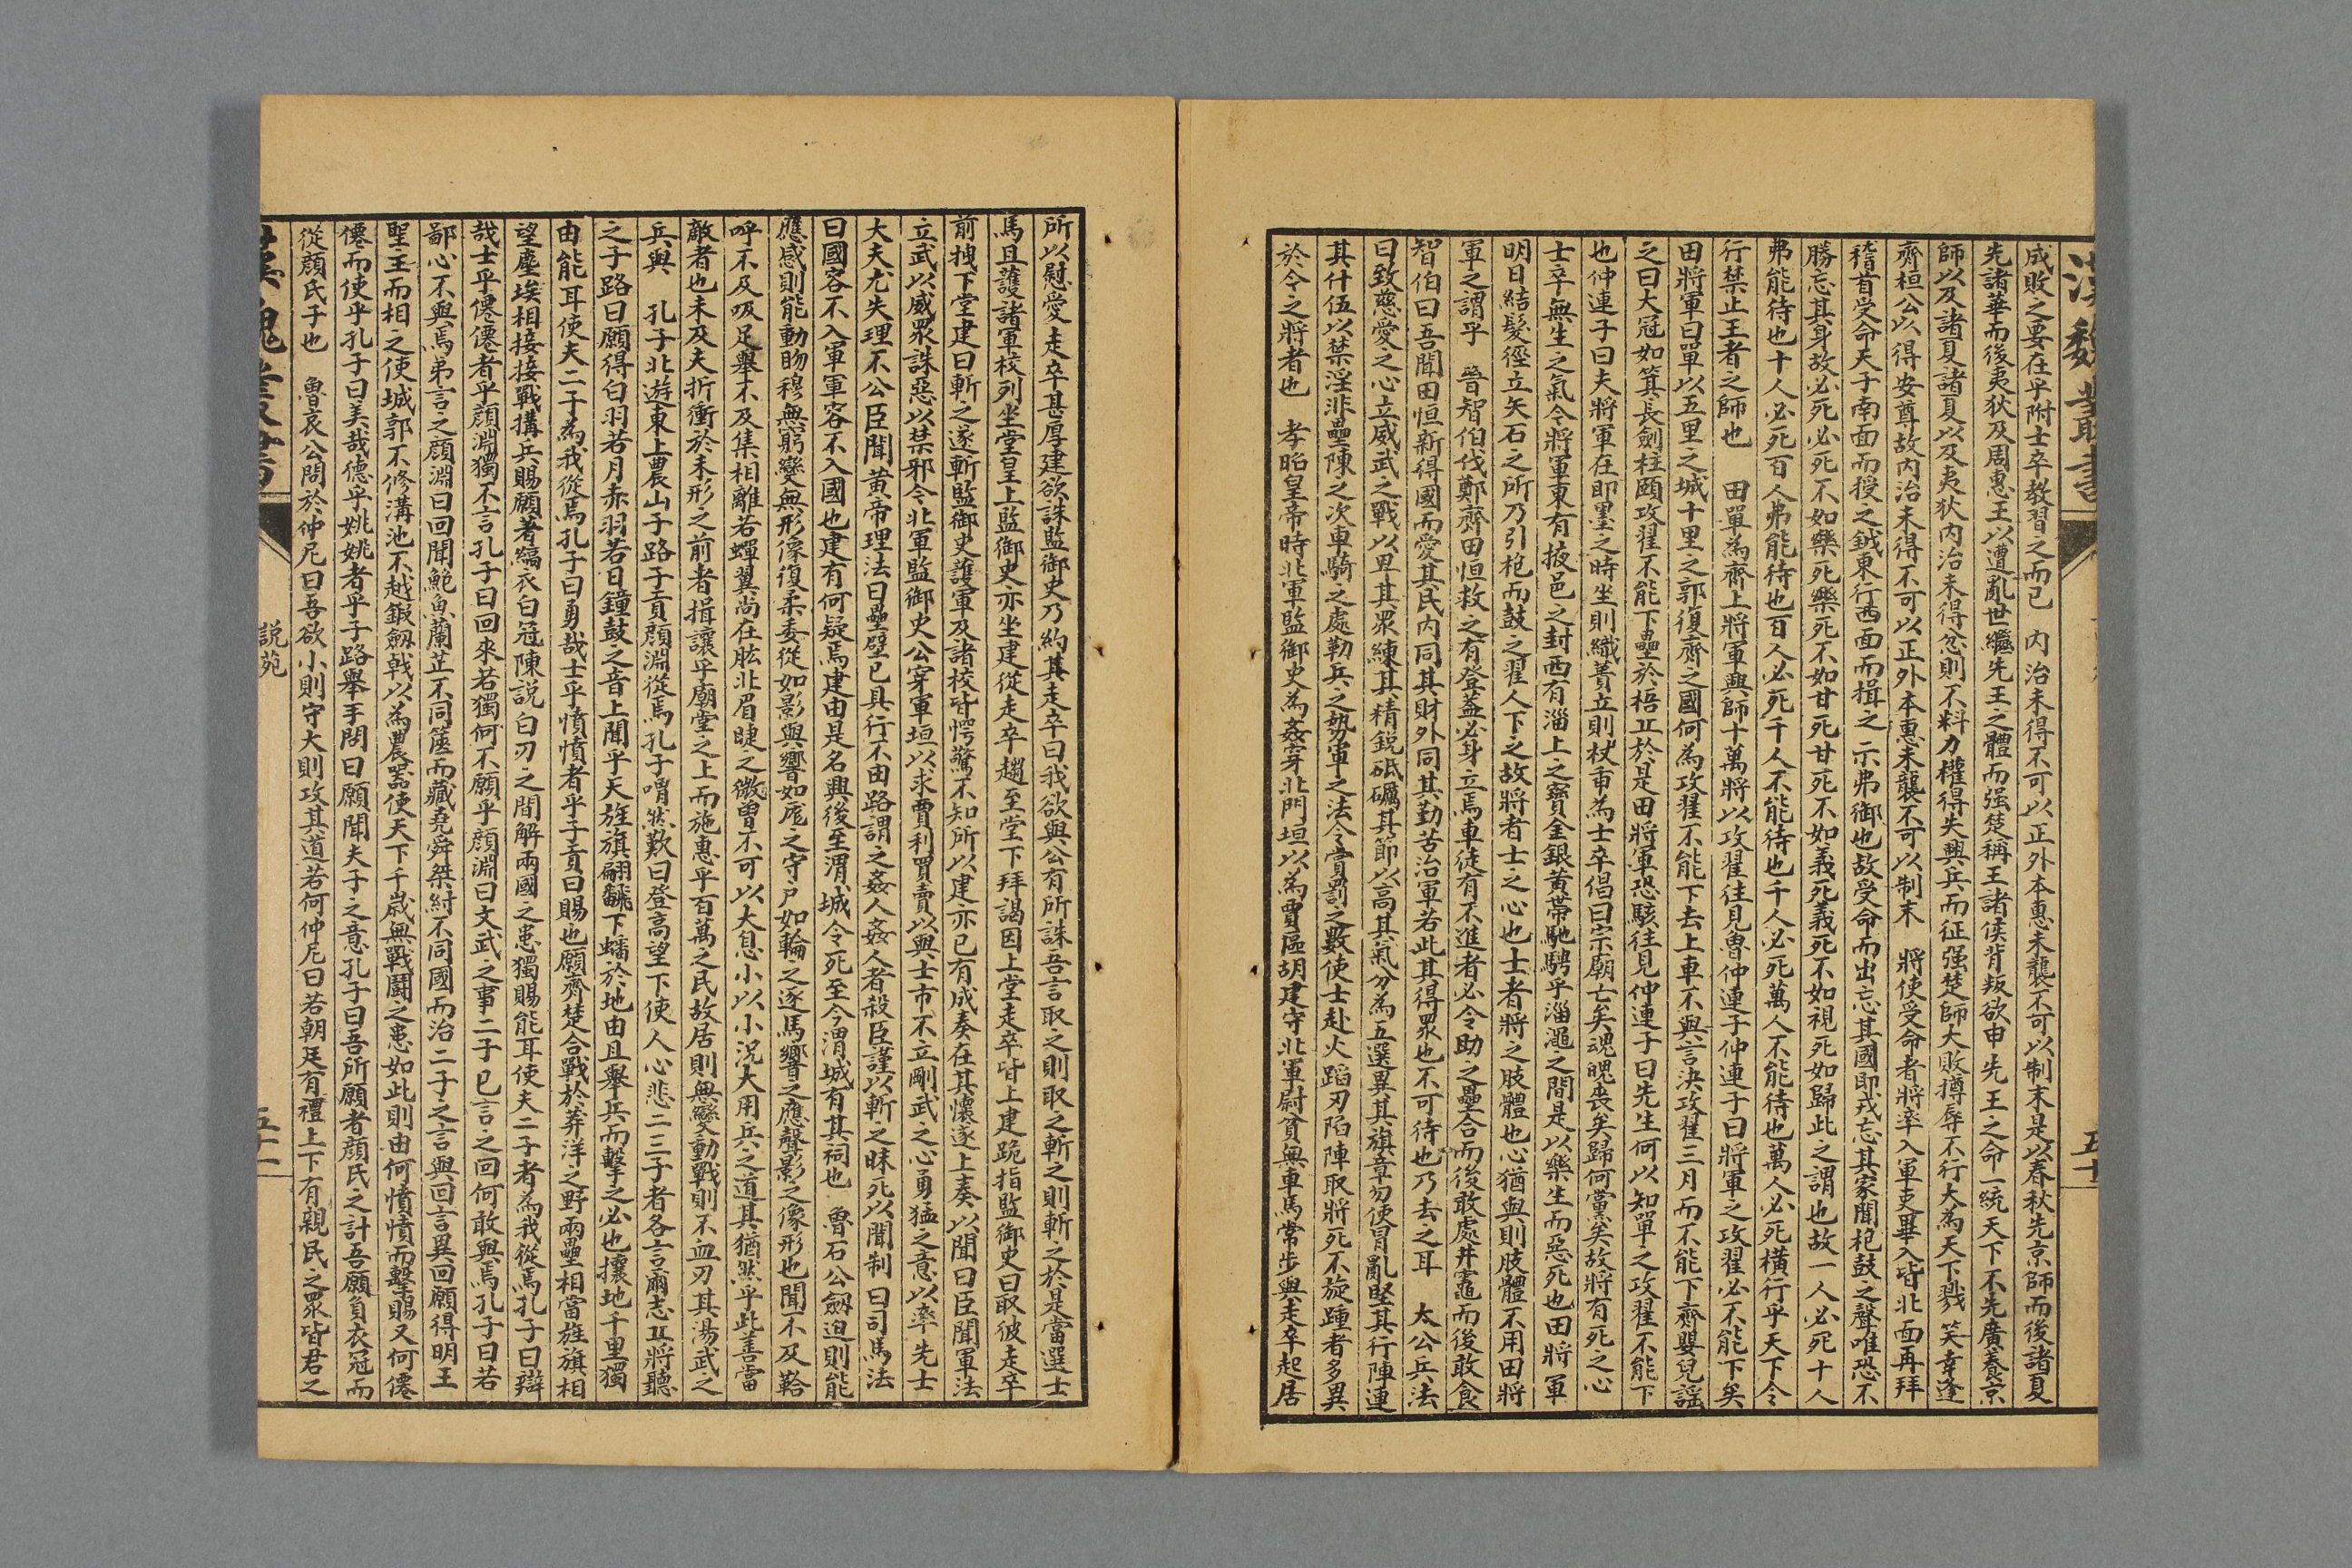 漢魏叢書
五十
成敗之要在乎附士卒教習之而已　內治未得不可以正外本惠未襲不可以制末是以春秋先京師而後諸夏
先諸華而後夷狄及周惠王以遭亂世繼先王之體而强楚稱王諸侯背叛欲申先王之命一統天下不先廣養京
師以及諸夏諸夏以及夷狄內治未得忿則不料力權得失興兵而征强楚師大敗撙辱不行大為天下戮笑幸逢
齊桓公以得安尊故內治未得不可以正外本惠未襲不可以制末　將使受命者將率入軍吏畢入皆北面再拜
稽首受命天子南面而授之鉞東行西面而揖之示弗御也故受命而出忘其國即戎忘其家聞枹鼓之聲唯恐不
勝忘其身故必死必死不如樂死樂死不如甘死甘死不如義死義死不如視死如歸此之謂也故一人必死十人
弗能待也十人必死百人弗能待也百人必死千人不能待也千人必死萬人不能待也萬人必死橫行乎天下令
行禁止王者之師也　田單為齊上將軍興師十萬將以攻翟往見魯仲連子仲連子曰將軍之攻翟必不能下矣
田將軍曰單以五里之城十里之郭復齊之國何為攻翟不能下去上車不與言決攻翟三月而不能下齊嬰兒謡
之曰大冠如箕長劍柱頤攻翟不能下壘於梧丘於是田將軍恐駭往見仲連子曰先生何以知單之攻翟不能下
也仲連子曰夫將軍在即墨之時坐則織蕢立則杖臿為士卒倡曰宗廟亡矣魂魄喪矣歸何黨矣故將有死之心
士卒無生之氣今將軍東有掖邑之封西有淄上之寶金銀黄帶馳騁乎淄澠之間是以樂生而惡死也田將軍
明日結髮徑立矢石之所乃引枹而鼓之翟人下之故將者士之心也士者將之肢體也心猶與則肢體不用田將
軍之謂乎　晉智伯伐鄭齊田恒救之有登蓋必身立焉車徒有不進者必令助之壘合而後敢處井竈而後敢食
智伯曰吾聞田恒新得國而愛其民內同其財外同其勤苦治軍若此其得眾也不可待也乃去之耳　太公兵法
曰致慈愛之心立威武之戰以卑其眾練其精銳砥礪其節以高其氣分為五選異其旗章勿使冒亂堅其行陣連
其什伍以禁淫非壘陳之次車騎之處勒兵之勢軍之法令賞罰之數使士赴火蹈刃陷陣取將死不旋踵者多異
於今之將者也　孝昭皇帝時北軍監御史為姦穿北門垣以為賈區胡建守北軍尉貧無車馬常步與走卒起居
所以慰愛走卒甚厚建欲誅監御史乃約其走卒曰我欲與公有所誅吾言取之則取之斬之則斬之於是當選士
馬且護諸軍校列坐堂皇上監御史亦坐建從走卒趨至堂下拜謁因上堂走卒皆上建跪指監御史曰取彼走卒
前拽下堂建曰斬之遂斬監御史護軍及諸校皆愕驚不知所以建亦已有成奏在其懷遂上奏以聞曰臣聞軍法
立武以威眾誅惡以禁邪今北軍監御史公穿軍垣以求賈利買賣以與士市不立剛武之心勇猛之意以率先士
大夫尤失理不公臣聞黄帝理法曰壘壁已具行不由路謂之姦人姦人者殺臣謹以斬之昧死以聞制曰司馬法
曰國容不入軍軍容不入國也建有何疑焉建由是名興後至渭城令死至今渭城有其祠也　魯石公劔迫則能
應感則能動昒穆無窮變無形像復柔委從如影與響如厖之守户如輪之逐馬響之應聲影之像形也聞不及鞈
呼不及吸足舉不及集相離若蟬翼尚在肱北眉睫之微曽不可以大息小以小况大用兵之道其猶然乎此善當
敵者也未及夫折衝於未形之前者揖讓乎廟堂之上而施惠乎百萬之民故居則無變動戰則不血刃其湯武之
兵與　孔子北遊東上農山子路子貢顏淵從焉孔子喟然歎曰登高望下使人心悲二三子者各言爾志丘將聽
之子路曰願得白羽若月赤羽若日鐘鼓之音上聞乎天旌旗翩飜下蟠於地由且舉兵而擊之必也攘地千里獨
由能耳使夫二子為我從焉孔子曰勇哉士乎憤憤者乎子貢曰賜也願齊楚合戰於莽洋之野兩壘相當旌旗相
望塵埃相接接戰搆兵賜願著縞衣白冠陳說白刃之間解兩國之患獨賜能耳使夫二子者為我從焉孔子曰辯
哉士乎僊僊者乎顏淵獨不言孔子曰回來若獨何不願乎顏淵曰文武之事二子已言之回何敢與焉孔子曰若
鄙心不與焉弟言之顏淵曰回聞鮑魚蘭芷不同篋而藏堯舜桀紂不同國而治二子之言與回言異回願得明王
聖主而相之使城郭不修溝池不越鍜劔戟以為農器使天下千歲無戰鬪之患如此則由何憤憤而擊賜又何僊
僊而使乎孔子曰美哉德乎姚姚者乎子路舉手問曰願聞夫子之意孔子曰吾所願者顏氏之計吾願負衣冠而
從顏氏子也　魯哀公問於仲尼曰吾欲小則守大則攻其道若何仲尼曰若朝廷有禮上下有親民之眾皆君之
漢魏叢書
說苑
五十一